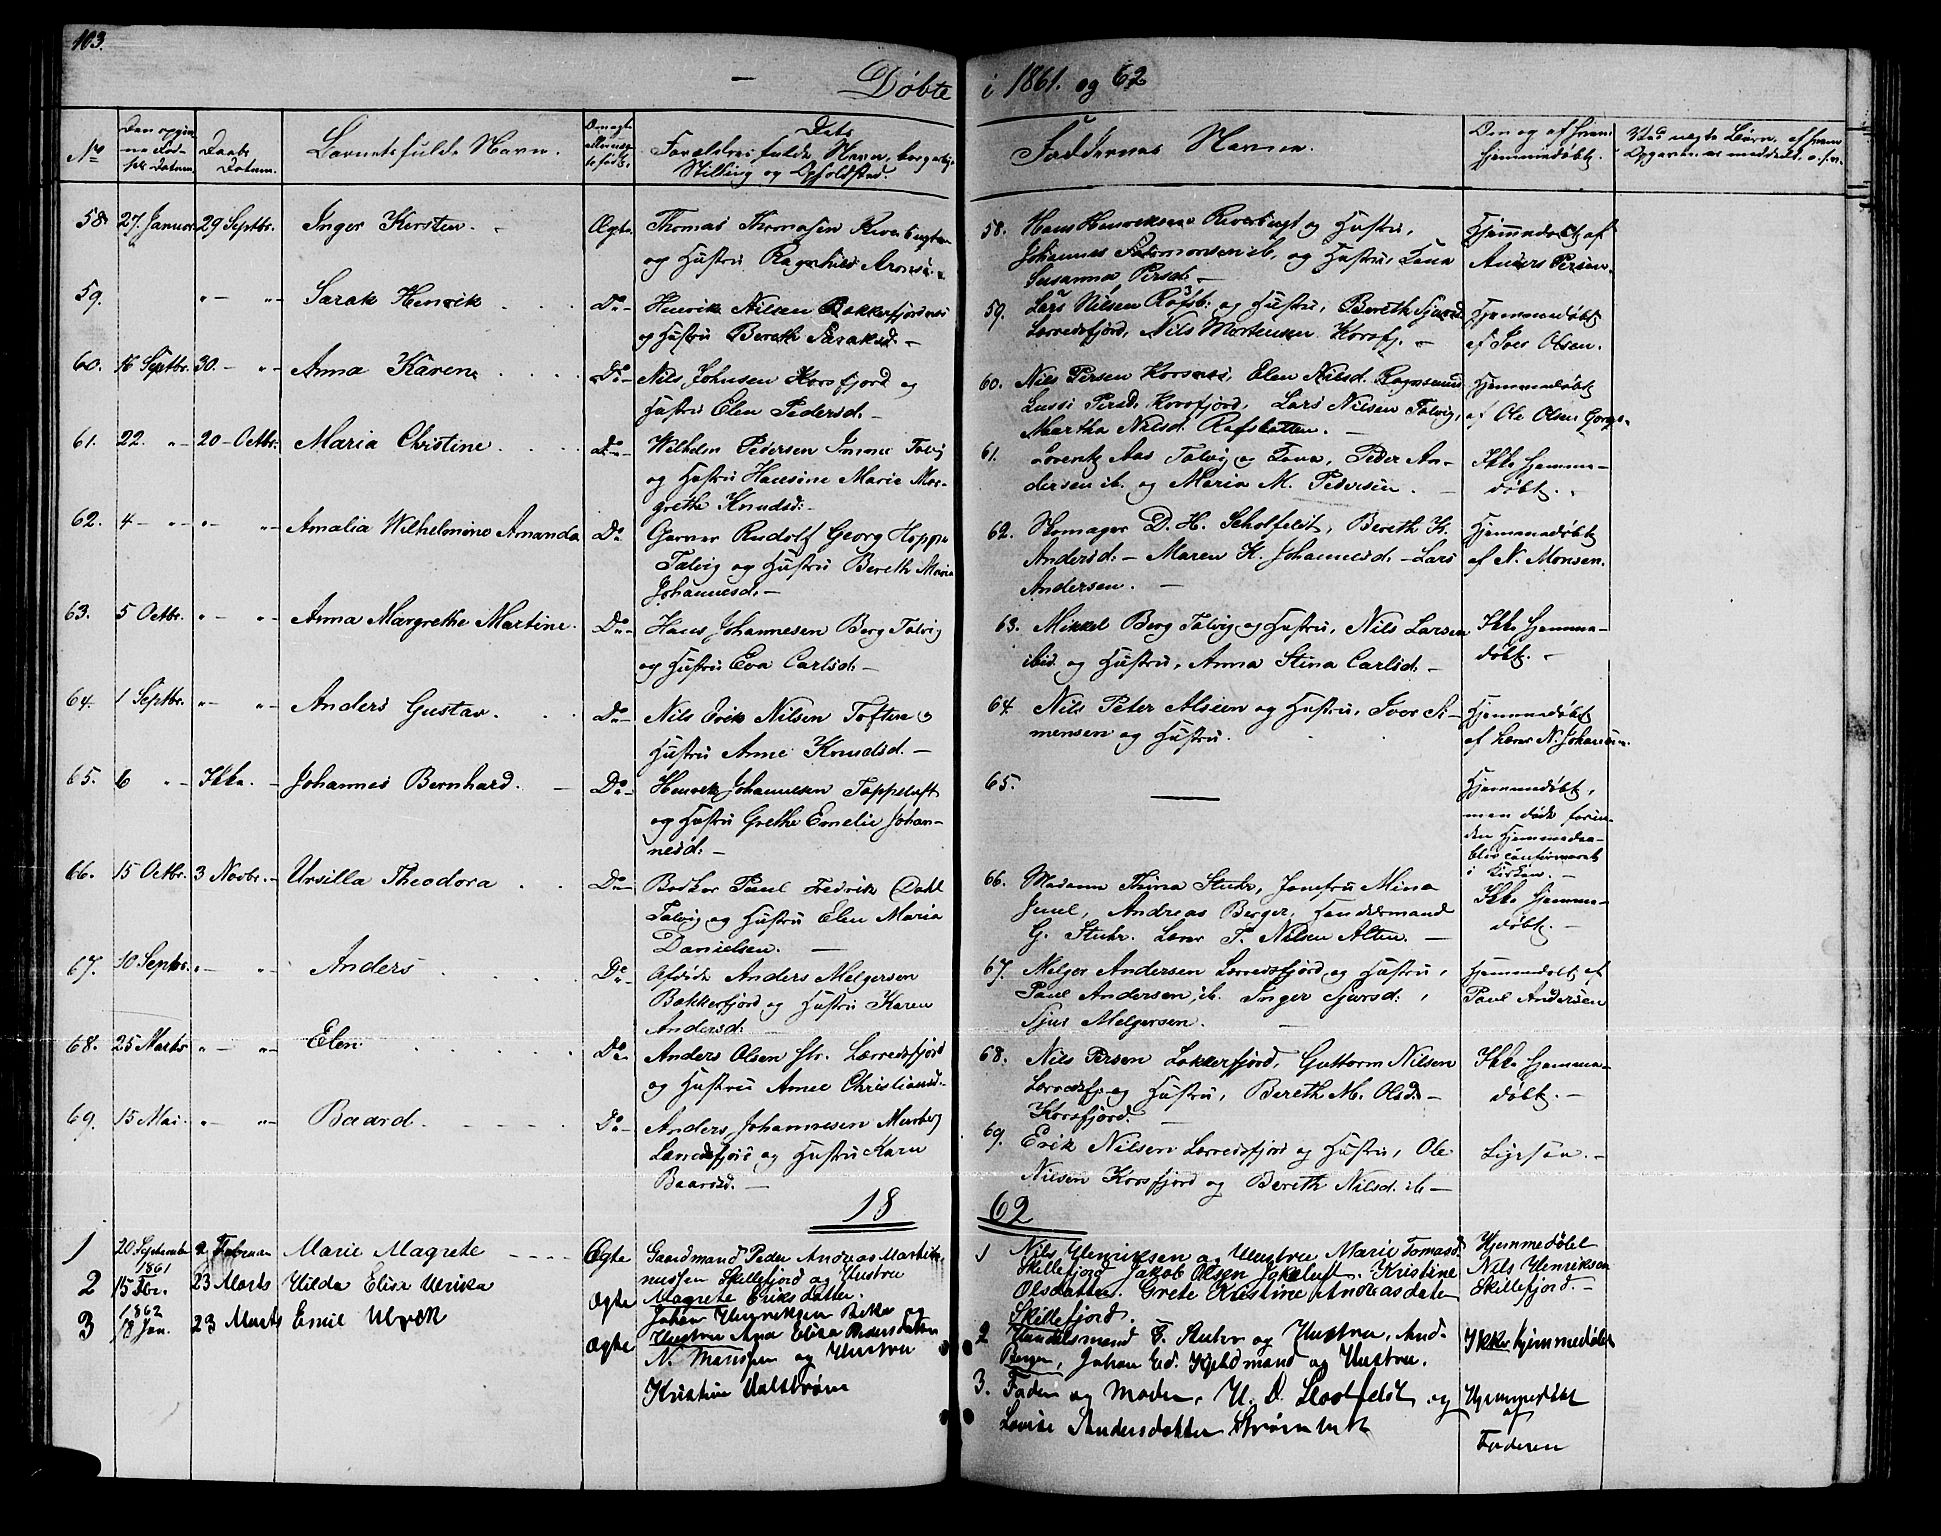 103.
Døbte i 1861. og 62
No
Datum.
Barnets fulde Navn.
Forældres fulde Navn, borgerlige
Stilling og Opholdsted.
Faddernes Navne.
Hjemmedøbt.
58. 27. Januar 29 Septbr. Inger Kirsten. Ægte Thomas Thomasen
og Hustru Ragnhild
58. Hans Henriksen og Hustru,
Johannes ib. og Hustru, Lena
Susanna Persd. -
Hjemmedøbt af
Anders Persen.
59. " - " - Sarak Henrik Do - Henrik Nilsen
og Hustru Bereth Saraksd. -
59. Lars Nilsen Rafsb. og Hustru, Bereth
Lerredsfjord, Nils Mortensen Korsfj. -
Hjemmedøbt
af Iver Olsen.
60. 16 Septbr. 30. - " - Anna Karen Do - Nils Johnsen Korsfjord og
Hustru Elen Pedersd. -
60. Nils Persen Korsnes, Elen Nilsd.
Lussi Persd. Korsfjord, Lars Nilsen Talvig,
Martha Nilsd. Rafsbotten. -
Hjemmedøbt
af Ole Olsen
61. 22. " - 20 - Octbr. Maria Christine Do - Wilhelm Pedersen Talvig
og Hustru Hansine Marie Mar-
grethe Knudsd: -
61. Lorentz Aas Talvig og Kone, Peder An-
dersen ib. og Maria M. Pedersen. -
Ikke hjemme-
døbt. -
62. 4 - " - " - " - Amalia Wilhelmine Amanda Do Garver Rudolf Georg Hoppe
Talvig og Hustru Bereth Maria
Johannesd. -
62. Skomager D. H. Scholfeldt, Bereth K.
Andersd. - Maren K. Johannesd. - Lars
Andersen. -
Hjemmedøbt
af N. Monsen.
63. 5 Octbr. " - " - Anna Margrethe Martine. Do - Hans Johannesen Berg Talvig
og Hustru Eva Carlsd. -
63. Mikkel Berg Talvig og Hustru, Nils Larsen
ibid. og Hustru, Anna Stina Carlsd. -
Ikke hjemme-
døbt. -
64. 1 Septbr. " - " - Anders Gustav. Do - Nils Erik Nilsen Toften og
Hustru Anne Knudsd. -
64. Nils Peter og Hustru, Iver Si-
mensen og Hustru.
Hjemmedøbt
af Lærer N. Johansen.
65. 6 " - Ikke. - Johannes Bernhard. - Do - Henrik Johannesen Toppeluft
og Hustru Grethe Emelie Johan-
nesd: -
65. -
Hjemmedøbt,
men døde forin-
den Hjemmedaa-
ben confirmeret
i Kirken. -
66. 15 Octbr. 3 Novbr. - Ursilla Theodora Do - Bødker Paul Fredrik Dahl
Talvig og Hustru Elen Maria
Danielsen. -
66. Madame Thina Stuhr, Jomfru Mina
Juul, Andreas Berger, Handelsmand
G. Stuhr. Lærer P. Nilsen Alten. -
Ikke hjemme-
døbt. -
67. 10 Septbr. " - " - Anders Do - Afdøde Anders Melgersen
Bakkerfjord og Hustru Karen
Andersd. -
67. Melger Andersen Lerredsfjord og Hustru,
Paul Andersen, ib. Inger Sjursd.,
Sjur Melgersen. -
Hjemmedøbt af
Paul Andersen
68. 25 Marts " - " - Elen Do - Anders Olsen Str. Lerredsfjord
og Hustru Anne Christiansd. -
68. Nils Persen Lakkerfjord, Guttorm Nilsen
Lerredsfj. og Hustru, Bereth M. Olsd. -
Korsfjord. -
Ikke hjemme-
døbt. -
69. 15 Mai. " - " - Baard. Do - Anders Johannesen Murberg
Lerredsfjord og Hustru Karen
Baardsd. -
69. Erik Nilsen Lerredsfjord og Hustru, Ole
Nilsen Korsfjord og Bereth Nilsd. ib -
Ligesaa. -
18 62
1 20 September 1861 2 Februar Marie Magrete Ægte Gaardmand Peder Andreas Martin
Skillefjord og Hustru
Magrete Eriksdatter.
1 Nils Henriksen og Hustru Marie Tomasd.
Skillefjord Jakob Olsen Jokeluft. Kristine
Olsdatter. Grete Kristine Andreasdater
Skillefjord.
Hjemmedøbt
Nils Henriksen
Skillefjord. -
2 15 Fbr. 1862 23 Marts Hilda Elise Ulrika Ægte Johan Henriksen og
Hustru Ana Elisa Pedersdatter
2 Handelsmand G. Stuhr og Hustru, And.
Berger, Johan Ed. Kjeldmand og Hustru.
Ikke hjemmedøbt
3 18 Jan. 23 Marts Emil Ulrik Ægte N. og Hustru
Kristine
3. Fader og Moder, H. D. og
Lovise Andersdatter
Hjemmedøbt
af
Faderen